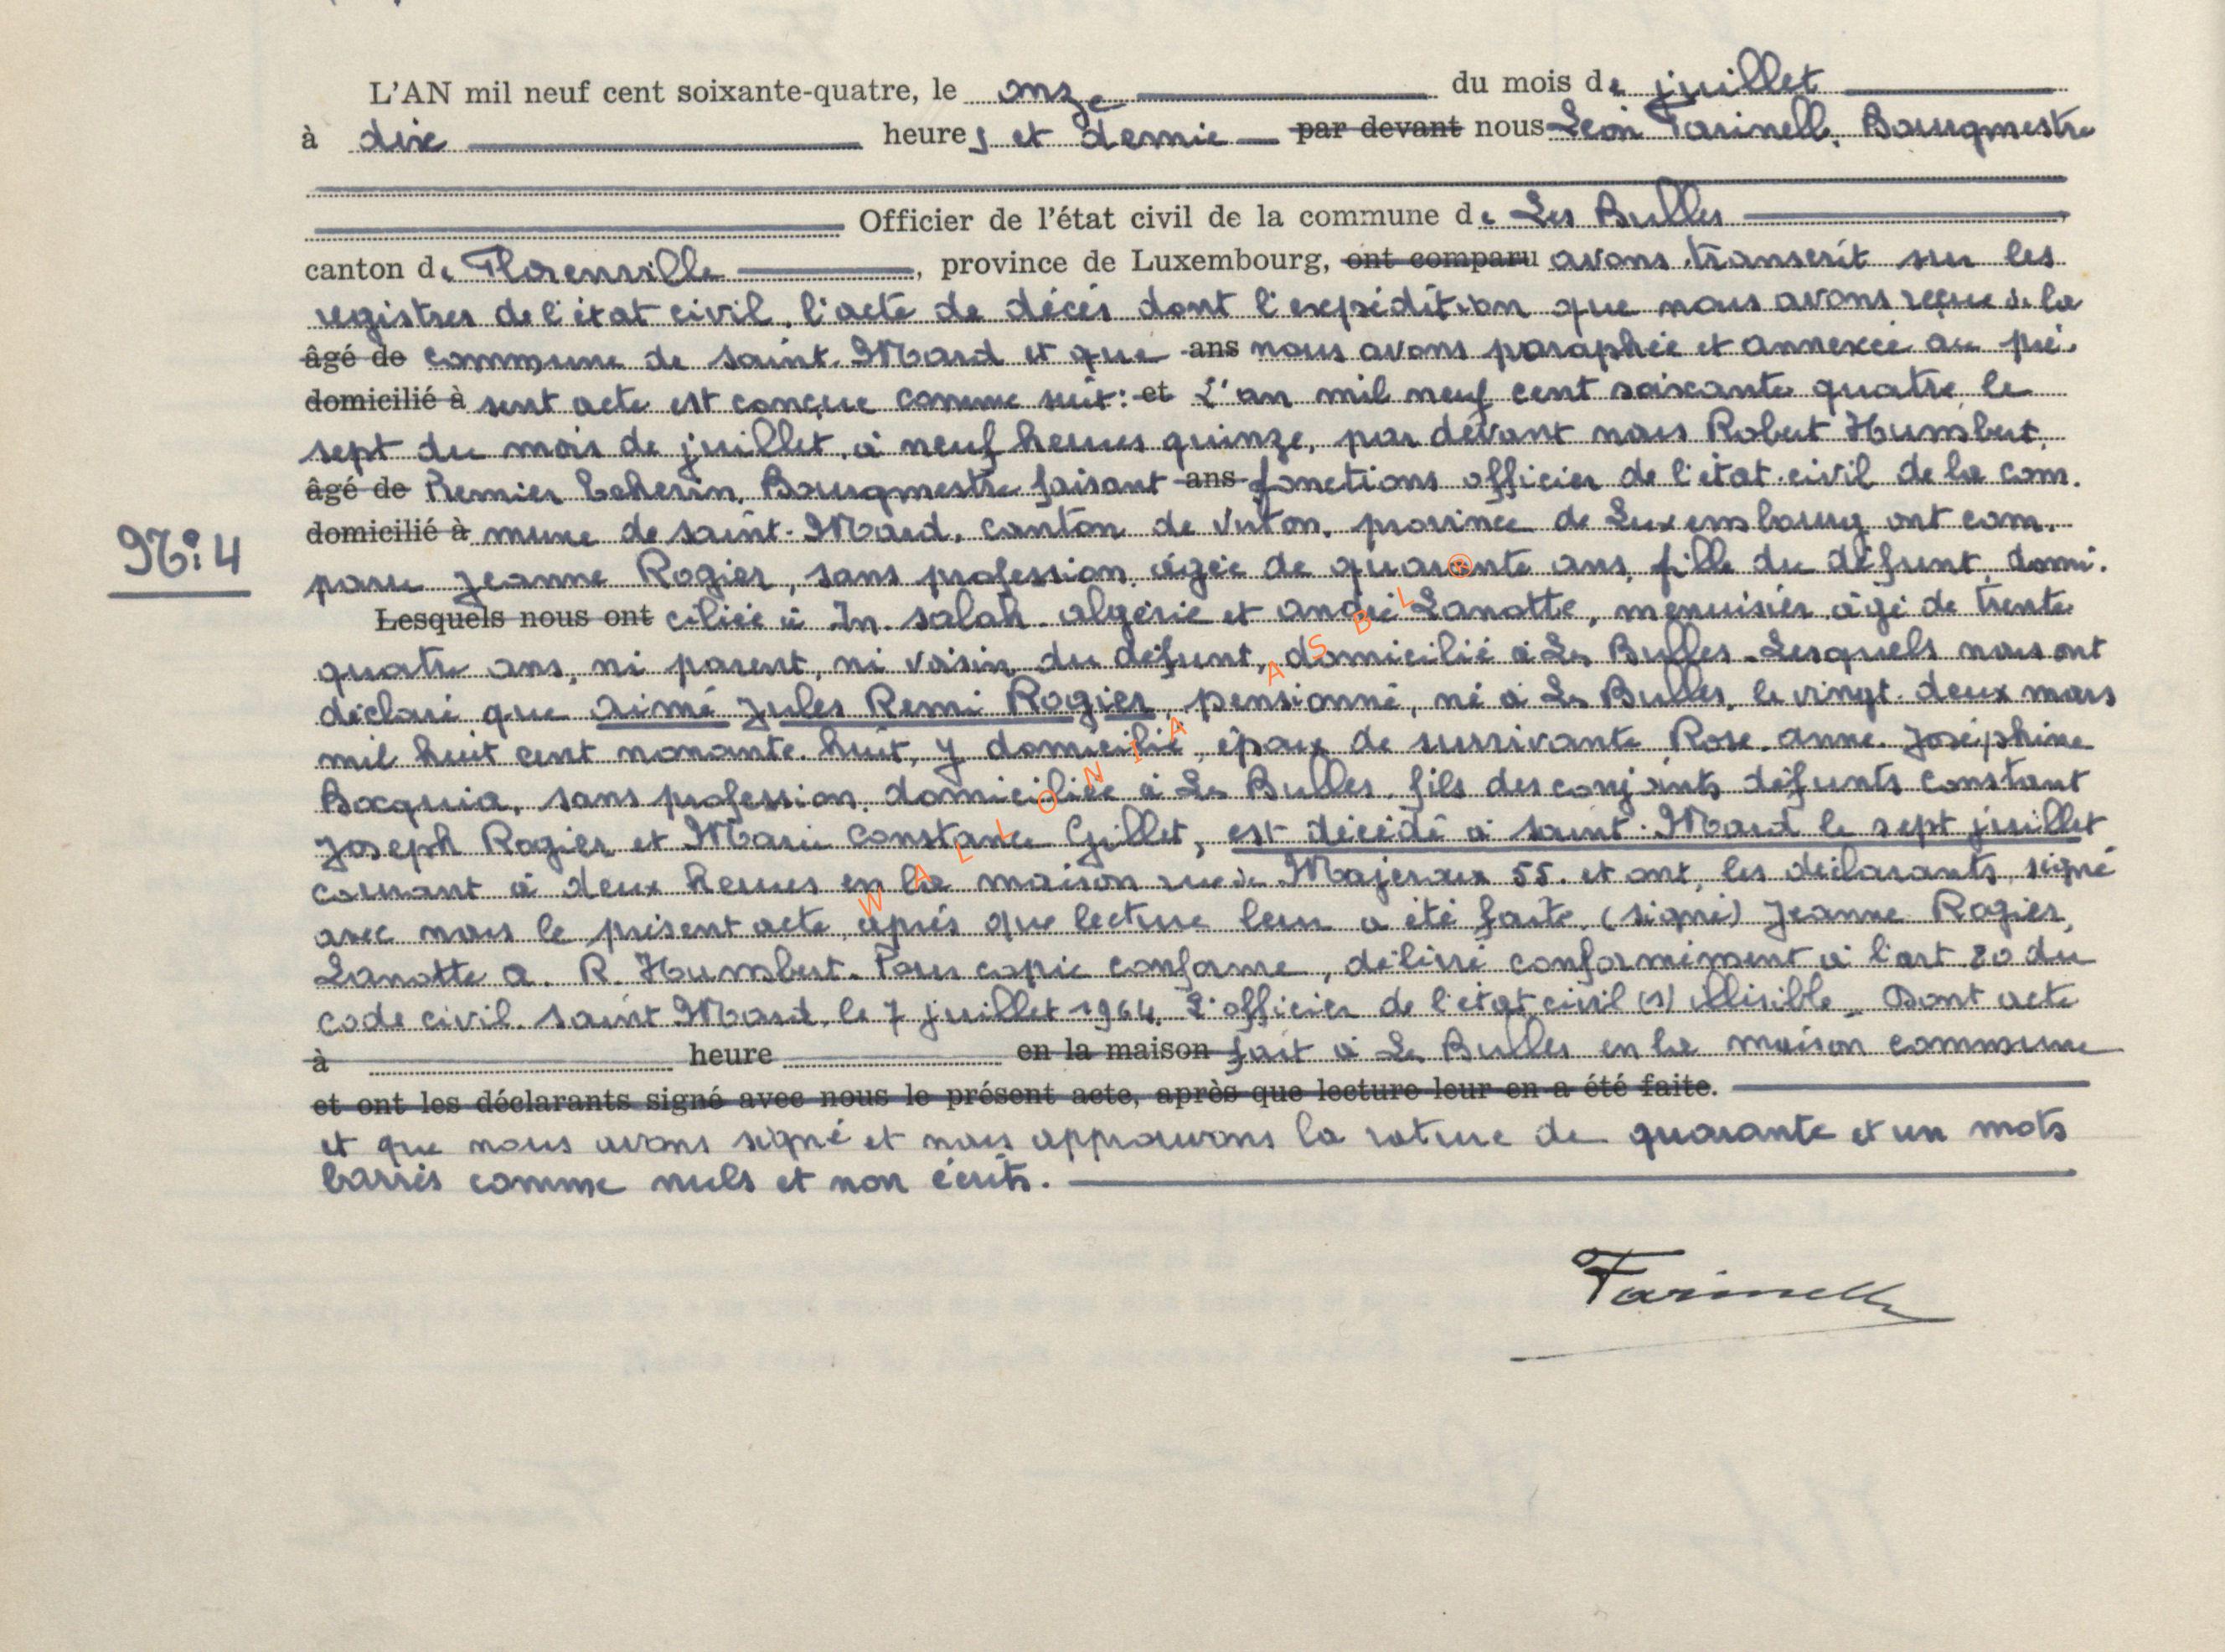 L'AN mil neuf cent soixante-quatre, le onze du mois de juillet
à dix heures et demie par devant nous Léon Farinelle, Bourgmestre
Officier de l'état civil de la commune de Les Bulles
canton de Florenville, province de Luxembourg, ont comparu avons transcrit sur les
registres de l'état civil, l'acte de décès dont l'expédition que nous avons reçue de la
âgé de commune de Saint-Mard et que ans nous avons paraphée et annexée au pré-
domicilié à sent acte est conçue comme suit: et L'an mil neuf cent soixante quatre, le
sept du mois de juillet, à neuf heures quinze, par devant nous Robert Humbert,
âgé de Premier Echevin, Bourgmestre faisant ans fonctions officier de l'état-civil de la com-
domicilié à mune de Saint-Mard, canton de Virton, province de Luxembourg ont com-
N°: 4
paru Jeanne Rogier, sans profession, âgée de quarante ans, fille du défunt, domi-
Lesquels nous ont ciliée à In-Salah-Algérie et André Lanotte, menuisier, âgé de trente
quatre ans, ni parent, ni voisin du défunt, domicilié à Les Bulles. Lesquels nous ont
déclaré que Aimé Jules Remi Rogier, pensionné, né à Les Bulles, le vingt-deux mars
mil huit cent nonante-huit, y domicilié, époux de survivante Rose-Anne-Joséphine
Bocquia, sans profession, domiciliée à Les Bulles, fils des conjoints défunts Constant
Joseph Rogier et Marie Constance Gillet, est décédé à Saint-Mard le sept juillet
courant à deux heures en la maison rue de Majeroux 55. et ont, les déclarants, signé
avec nous le présent acte, après que lecture leur a été faite. (signé) Jeanne Rogier,
Lanotte A. R. Humbert. Pour copie conforme, délivré conformément à l'art 80 du
code civil. Saint Mard, le 7 juillet 1964. L'officier de l'état civil (s) illisible. Dont acte
à heure en la maison fait à Les Bulles en la maison commune
et ont les déclarants signé avec nous le présent acte, après que lecture leur en a été faite.
et que nous avons signé et nous approuvons la rature de quarante et un mots
barrés comme nuls et non écrits.
Farinelle
WALLONIA ASBL ®